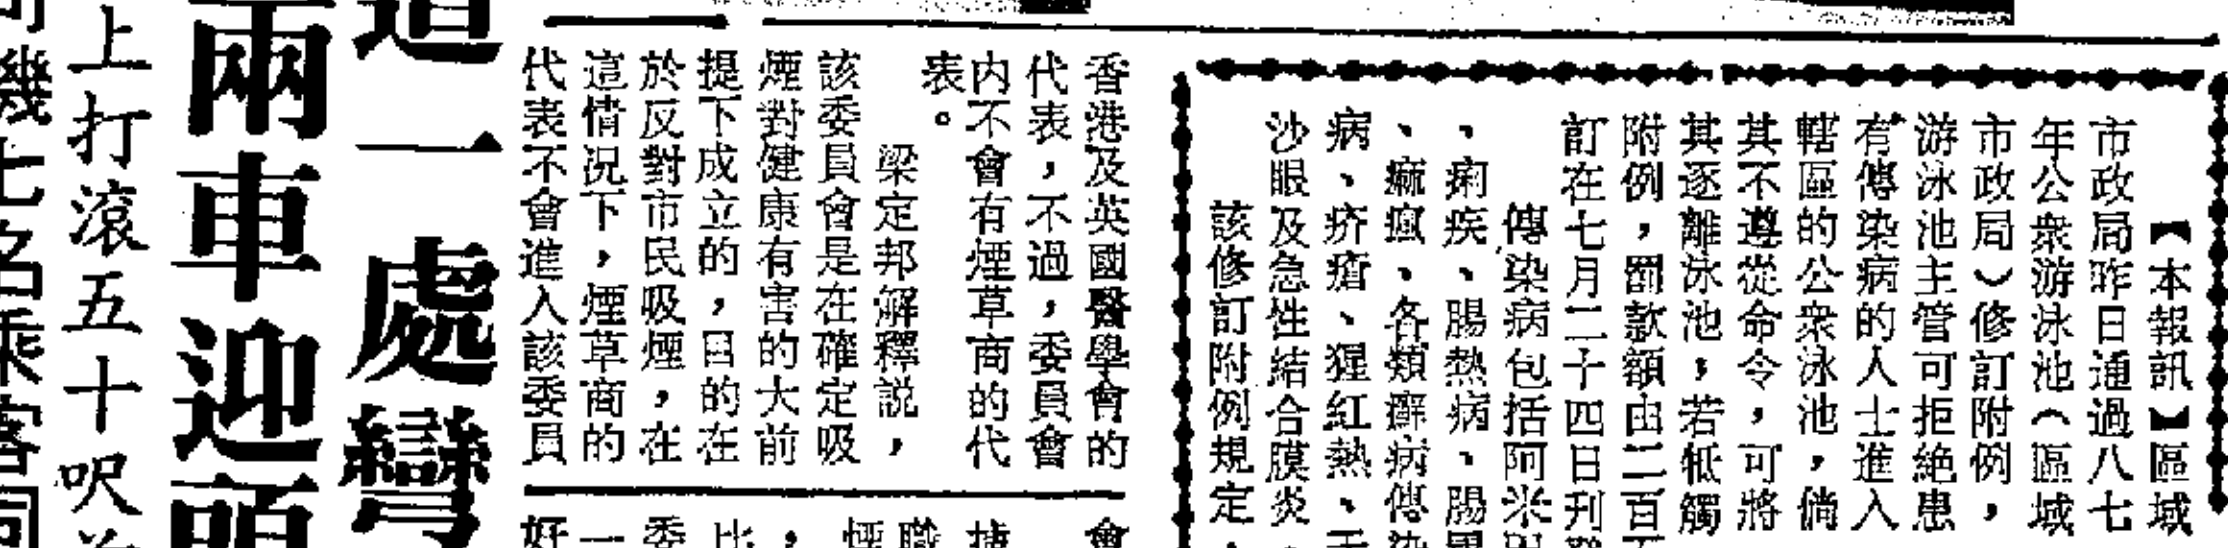 【本報訊】區域
市政局昨日通過八七
年公衆游泳池（區域
市政局）修訂附例，
游泳池主管可拒絶患
有傳染病的人士進入
轄區的公衆泳池，倘
其不遵從命令，可將
其逐離泳池，若牴觸
附例，罰款額由二百
訂在七月二十四日刊
傳染病包括阿米
、痢疾、腸熱病、腸
、痲瘋、各類癬病傳染
病、疥瘡、猩紅熱、
沙眼及急性結合膜炎。
該修訂附例規定，
香港及英國醫學會的
代表，不過，委員會
内不會有煙草商的代
表。
梁定邦解釋説，
該委員會是在確定吸
煙對健康有害的大前
提下成立的，目的在
於反對市民吸煙，在
這情况下，煙草商的
代表不會進入該委員
會
職
煙
，
比
委
一
好
道一處彎
兩車迎頭
上打滾五十呎
機七名乘客同